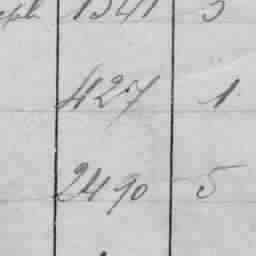 1341 3
427 1
2490 5